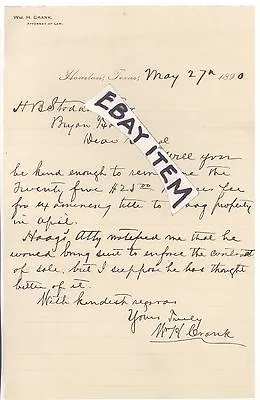 WM. H. CRANK,
ATTORNEY AT LAW.
Houston, Texas, May 27th 1890
H B Stodd
Bryan
Dear
will you
be kind enough to the
Twenty five $25.00 fee
for examining title to Haag property
in april.
Haag's Atty notified me that he
would bring suit to enforce the contract
of sale, but I suppose he has thought
better of it.
With kindest regards
Yours Truly
Wm H Crank
EBAY ITEM